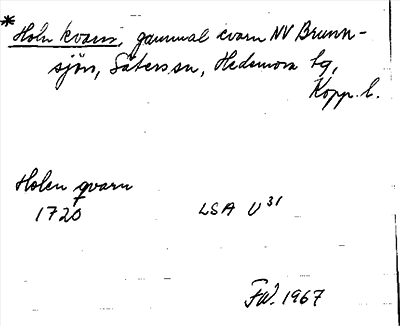 * Holn kvarn, gammal cvarn NV Brunn-
sjön, Säters sn, Hedemora tg,
Kopp. l.
Holen qvarn
1720 LSA U 31
FW. 1967